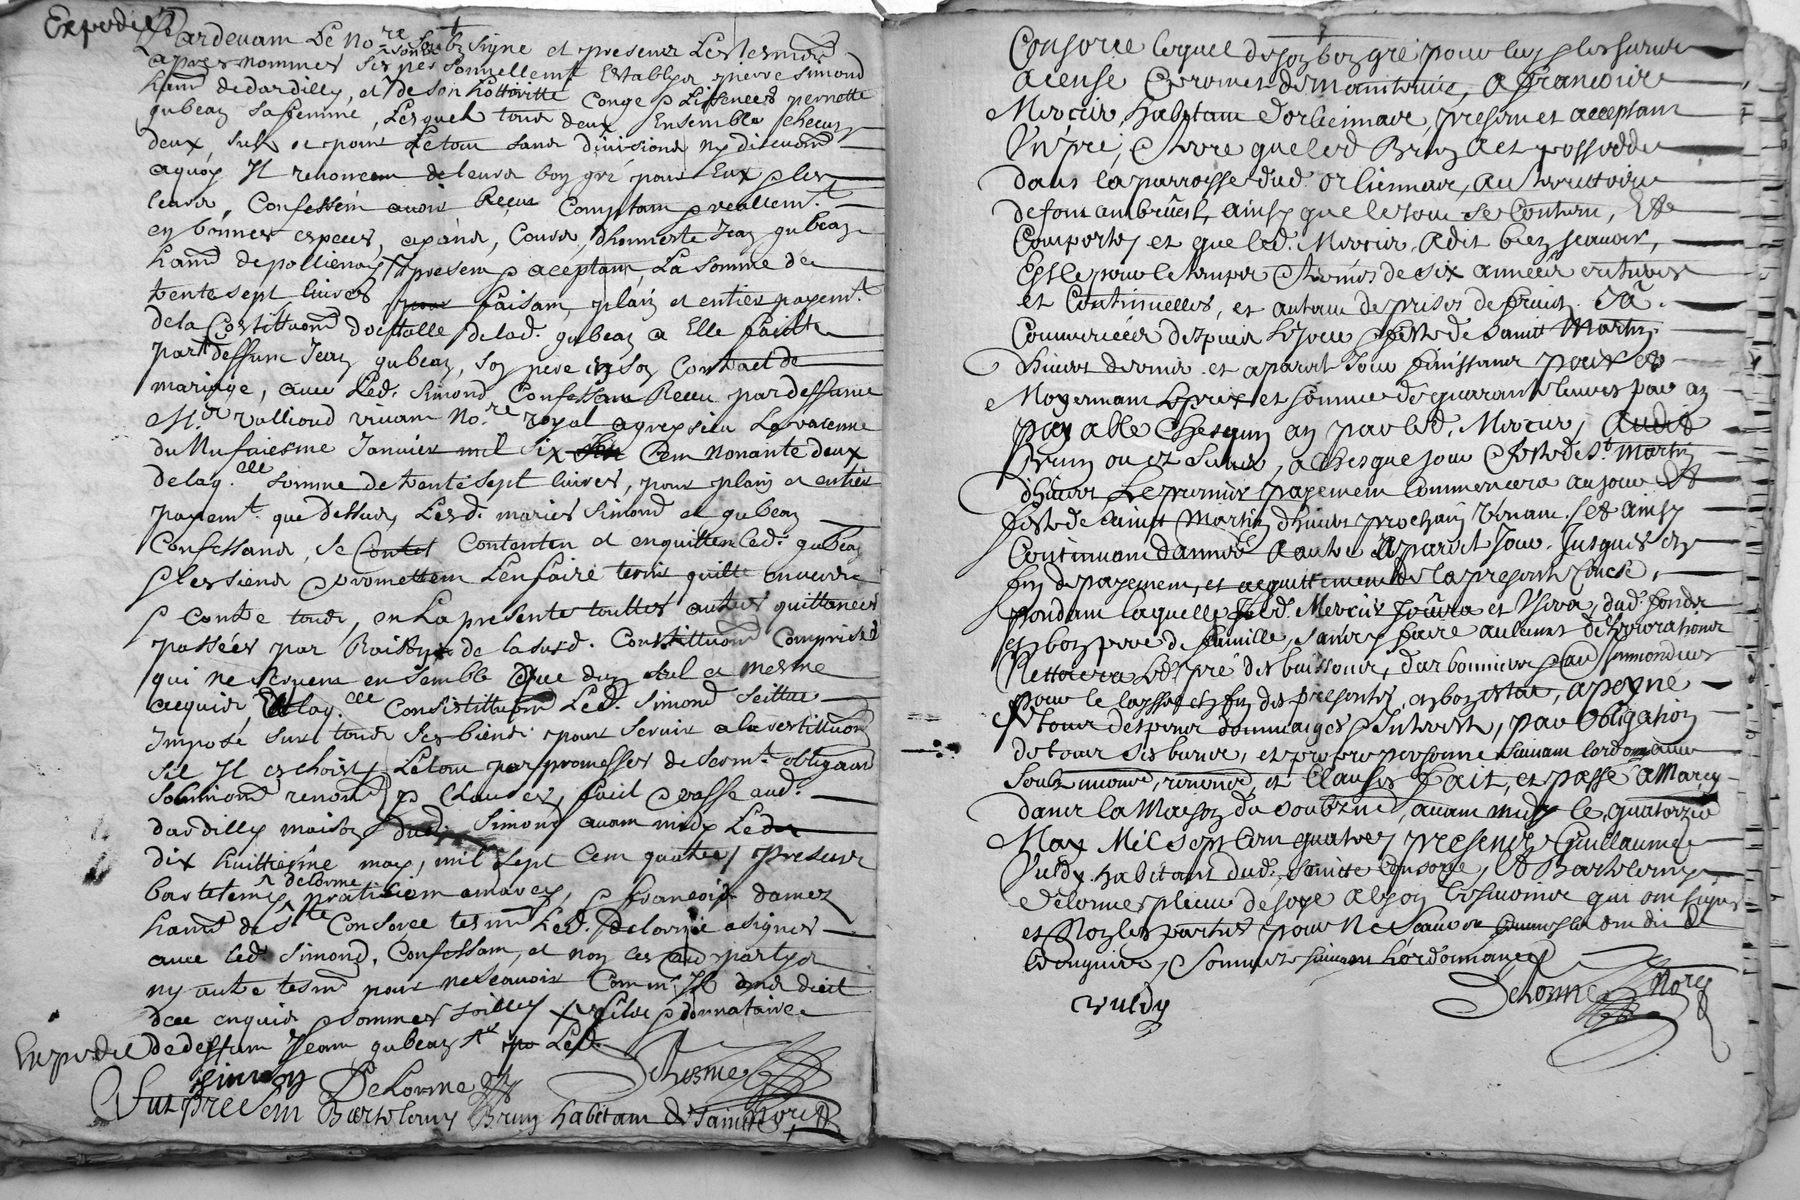 Expedié
Pardevant Le No.re soubz signe et presenz Les tesmoins
apres nommes sont personnellement Establys pierre simond
hant de dardilly, et de son hottoritte Conge & Lissences pernette
gubeaz sa femme, Lesquels tous deux Ensemble checun
deux, sul et pour Le tout sans divisions ny discution
a quoy Il renoncent de leurs bon gré pour Eux & les
leurs, Confessent avoir Reçeu Comptant & reallem.t
en bonnes especes, ayans, Cours, d'honneste Jean gubeaz
hant de pollienay present & aceptant, La somme de
trente sept livres faisant, plain et entier payem.t
de la Constituon dostalle de lad. gubeaz a Elle faitte
par deffunt Jean gubeaz, son pere en son Contract de
mariage, avec Led. Simond Confessant Receu par deffunt
M.e valliond vivant No.re royal
du Nufaiesme Janvier mil six Cent Nonante deux
de laq.elle somme de trente sept livres, pour plain et entier
payem.t que Dessus, Lesd. mariés Simond et gubeaz
Confessans, se Contentent et en quittent led. gubeaz
& les siens & promettent L'en faire tenir quitte envers
& Contre tous, en La presente touttes autres quittances
passées par Raison de la susd. Constituon Comprises
qui ne serviront ensemble que d'un seul et mesme
acquis, Et laq.elle Constitution Led. Simond
Imposé sur tous ses biens pour servir a la restitution
sil Il eschoist, Le tout par promesses de serm.t obligaon
Submions renom & Clauses, fait & passé aud.
dardilly maison dud. Simond avant midy Le
dix huittiesme may, mil sept Cent quattre / presents
bartelemy delorme praticien a marcy, & francois damez
hant de s.te Consorce tesm Led. Delorme a signés
avec led. Simond, Confessant, et non les aud partyes
ny autre tesm pour ne scavoir Comm Ils ont dict
de ce enquis & sommés x fils & donnataire
Expedié de deffunt Jean gubeaz x Led.
simon DeLorme Delorme
Fut presant Barthelemy Brun habitant de Sainte Nore
Consorce lequel de son bon gré pour luy & les siens
acense & promet de maintenir, a francoise
Mercier, habitant d'orliennas, present et acceptant
Un pré, & terre que led. Brun a et possedde
dans la parroisse dud. orliennas, au territoire
de font ambruest, ainsy que le tout se Contient, Et se
Comporte, et que led. Mercier, a dit bien scavoir,
Est le pour le temps & terme de six années entieres
et Continuelles, et autant de prises de fruict Ja
Commencées despuis le jour & feste de Saint Martin
d'hivert dernier et a pareil jour finissant pour et
Moyennant le prix et somme de quarante livres par an
payable chesqun an par led. Mercier, Audit
Brun ou es siens, a chesque jour & feste de S.t Martin
d'hivert Le premier payement Commencera au jour Et
feste de Saint Martin d'hivert prochain venant / et ainsy
Continuant d'année a autre a pareil jour Jusques en
fin de payement, et acquittement de la presente Cense,
Pendant laquelle Led. Mercier Jouira et Usera, dud. fonds
en bon pere de famille, sans y faire aucunes deteriorations
Nettoiera led. pré des buissons, d'arbonnieres & aud Immondices
pour le laisser en fin des presentes, en bon estat, a peyne
de tous despens dommages & interests, par Obligation
de tous ses biens, et propre personne suivant lordonnance
Soubzmions, renonce, et Clauses fait, et passé a Marcy
dans la Maison du soubzsigné, avant midy le quatorzie
May Mil sept Cent quatre, presents Guillaume
Vuldy habitant dud. Sainte Consorce, et Barthelemy
Delorme tesmoins qui ont signé
et Non les parties pour Ne scavoir comme ils ont dit de
ce enquis, & sommes suivant l'ordonnance
vuldy
Delorme Nore